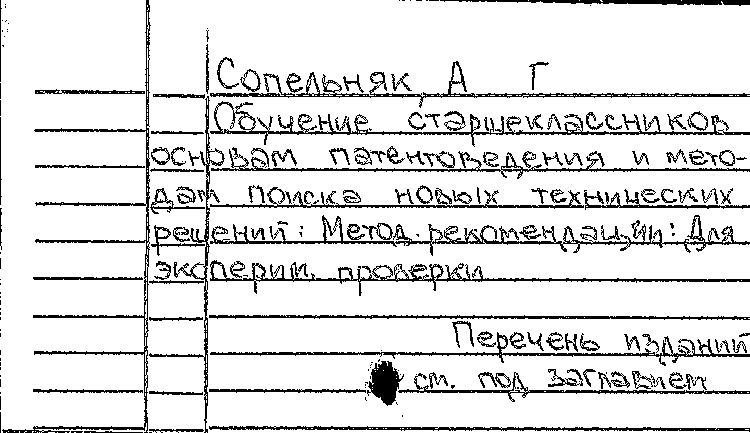 Сопельняк, А Г
Обучение старшеклассников
основам патентоведения и мето-
дам поиска новых технических
решений: Метод. рекомендации: Для
эксперим. проверки
Перечень изданий
см. под заглавием